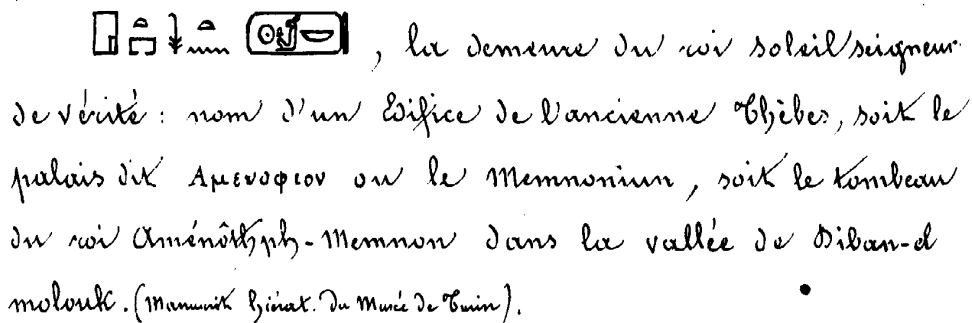 𓉗𓏏𓉐𓇓𓏏𓈖𓍹𓇳𓁦𓎟𓍺, la demeure du roi soleil seigneur
de vérité : nom d'un Edifice de l'ancienne Thèbes, soit le
palais dit Αμενοφιον ou le Memnonium, soit le tombeau
du roi Aménôthph-Memnon dans la vallée de Biban-el
molouk. (Manuscrit hiérat. du Musée de Turin).